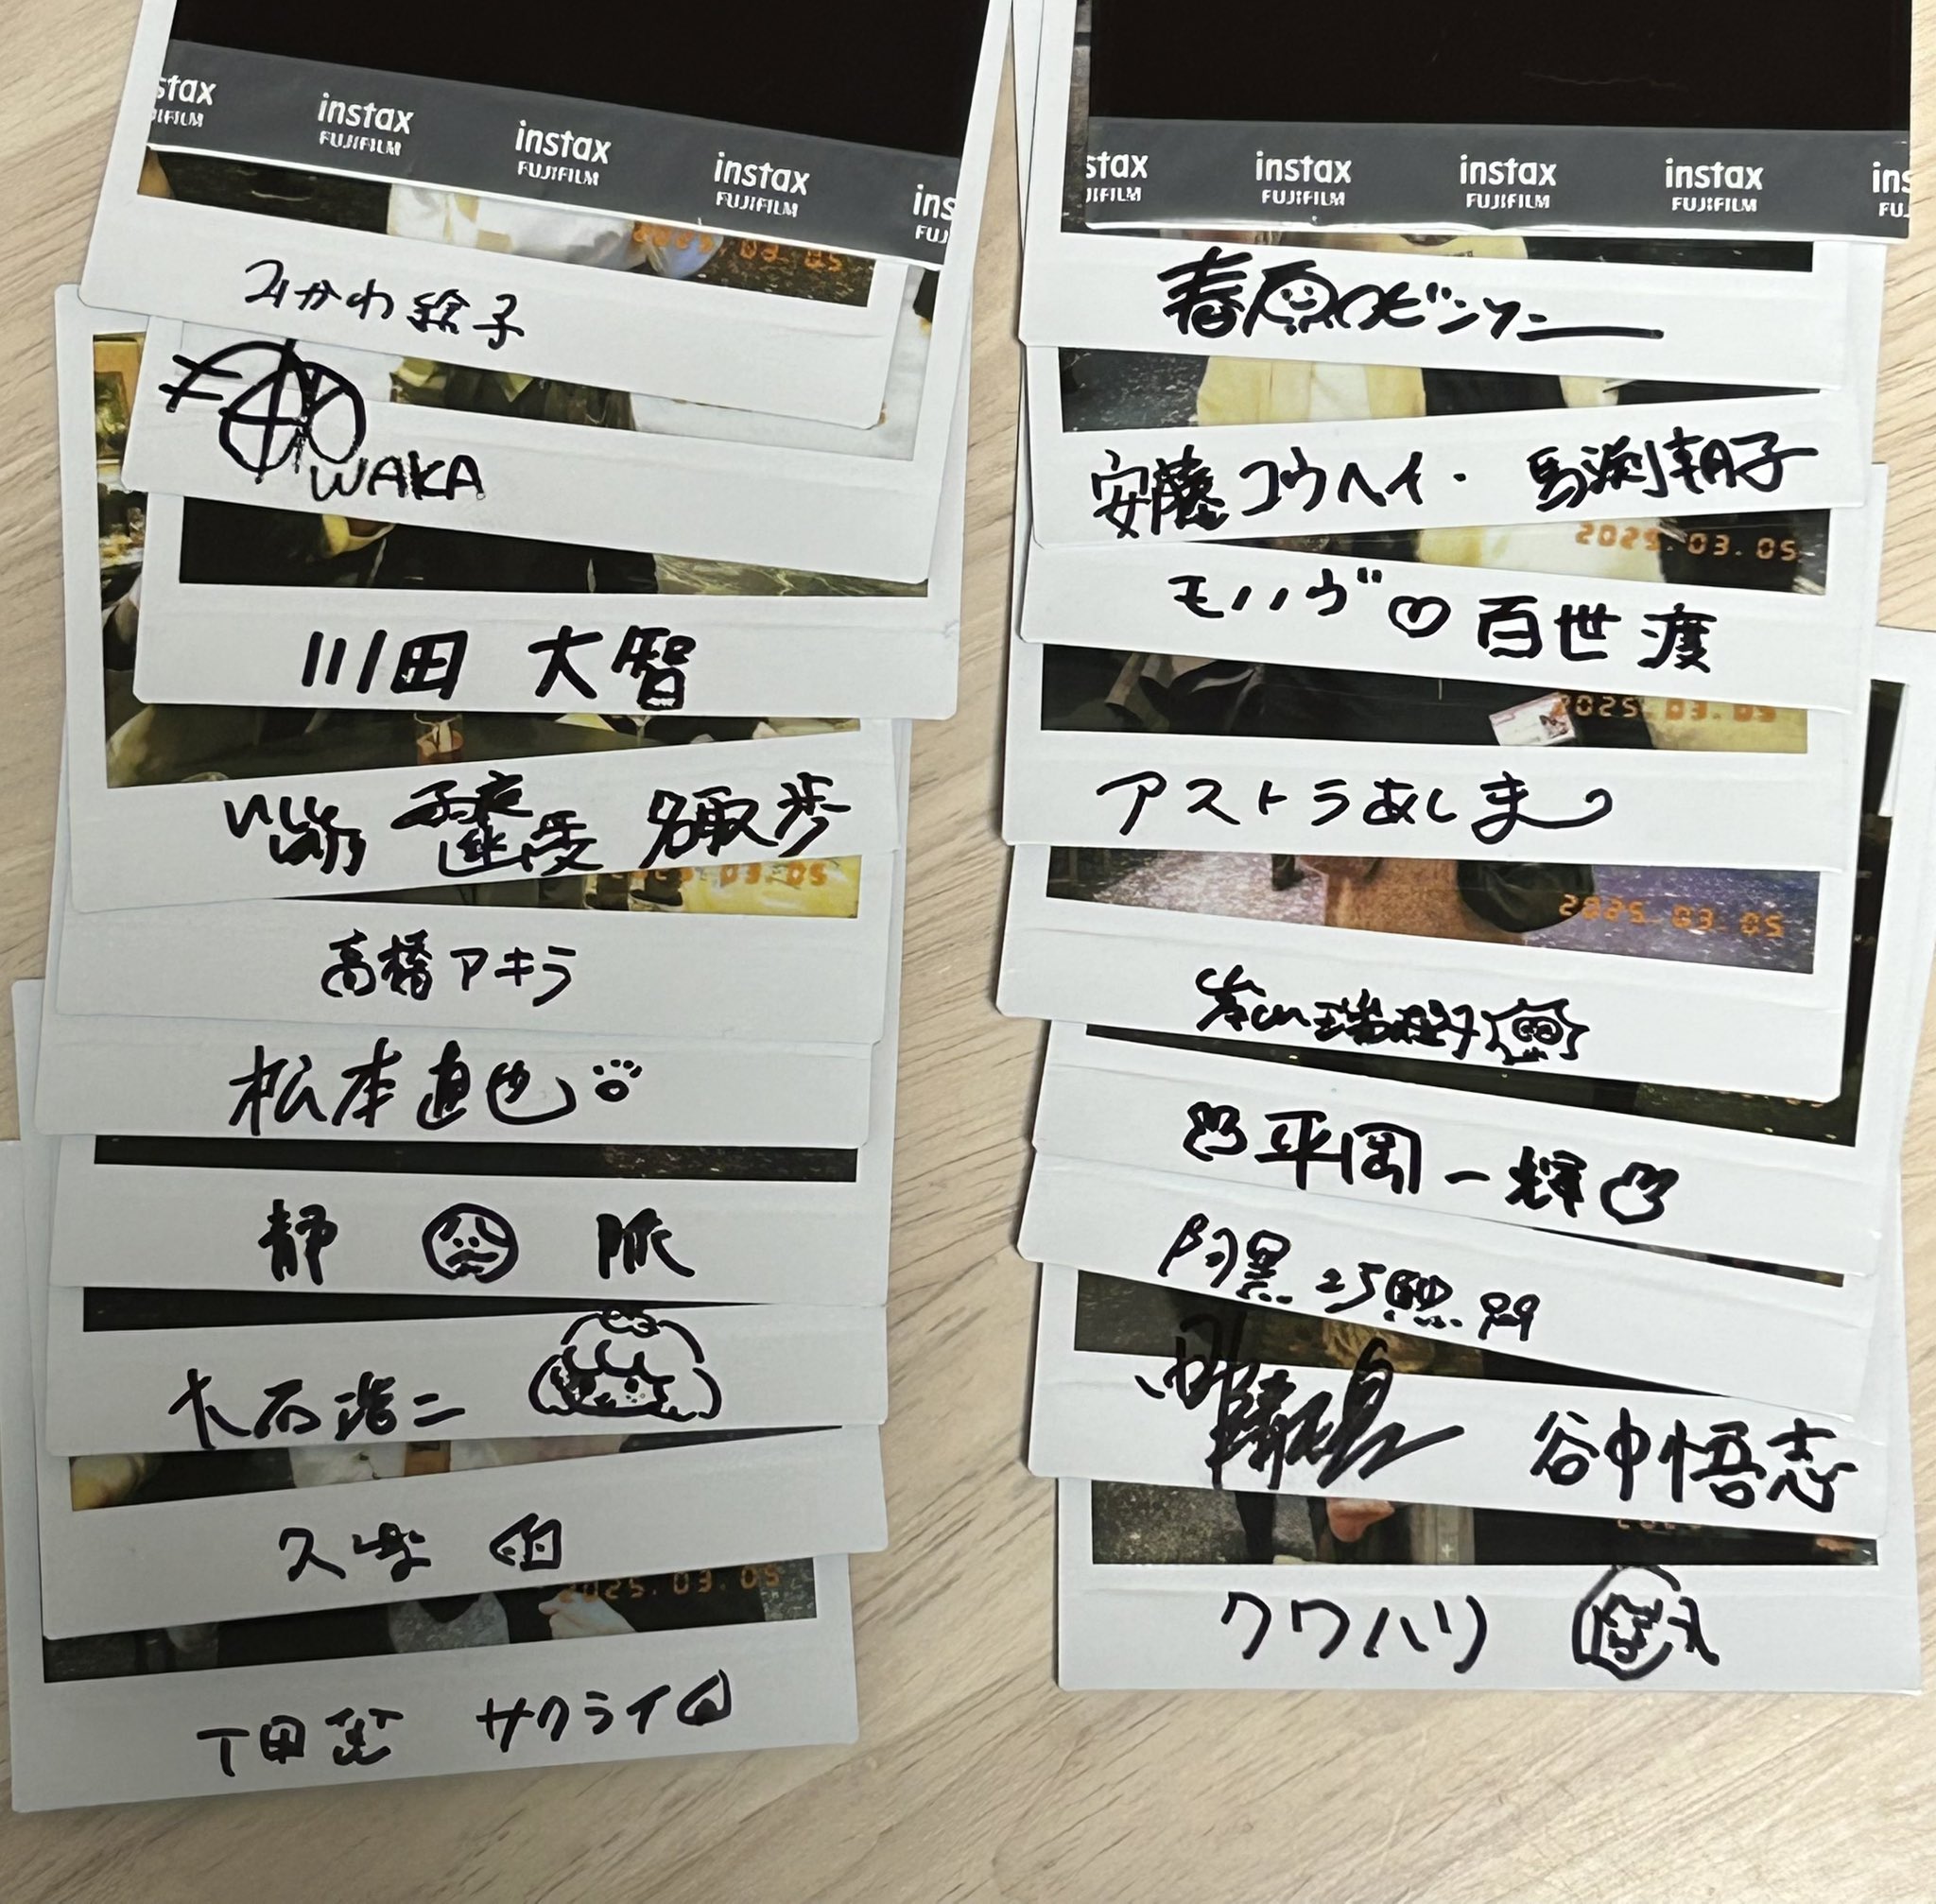 stax instax instax instax ins
JIFILM FUJIFILM FUJIFILM FUJIFILM FUJ
03.05
みかわ絵子
WAKA
川田 大智
名取歩
03.05
高橋アキラ
松本直也
静 脈
大石浩二
久
2025.03.05
丁田 サクライ
stax instax instax instax ins
JIFILM FUJIFILM FUJIFILM FUJIFILM FU
春原ロビンソン
安藤コウヘイ・馬渕朝子
2025.03.05
モノノヴ♡百世渡
2025.03.05
アストラあしま
2025.03.05
平岡一輝
谷中悟志
クワハリ